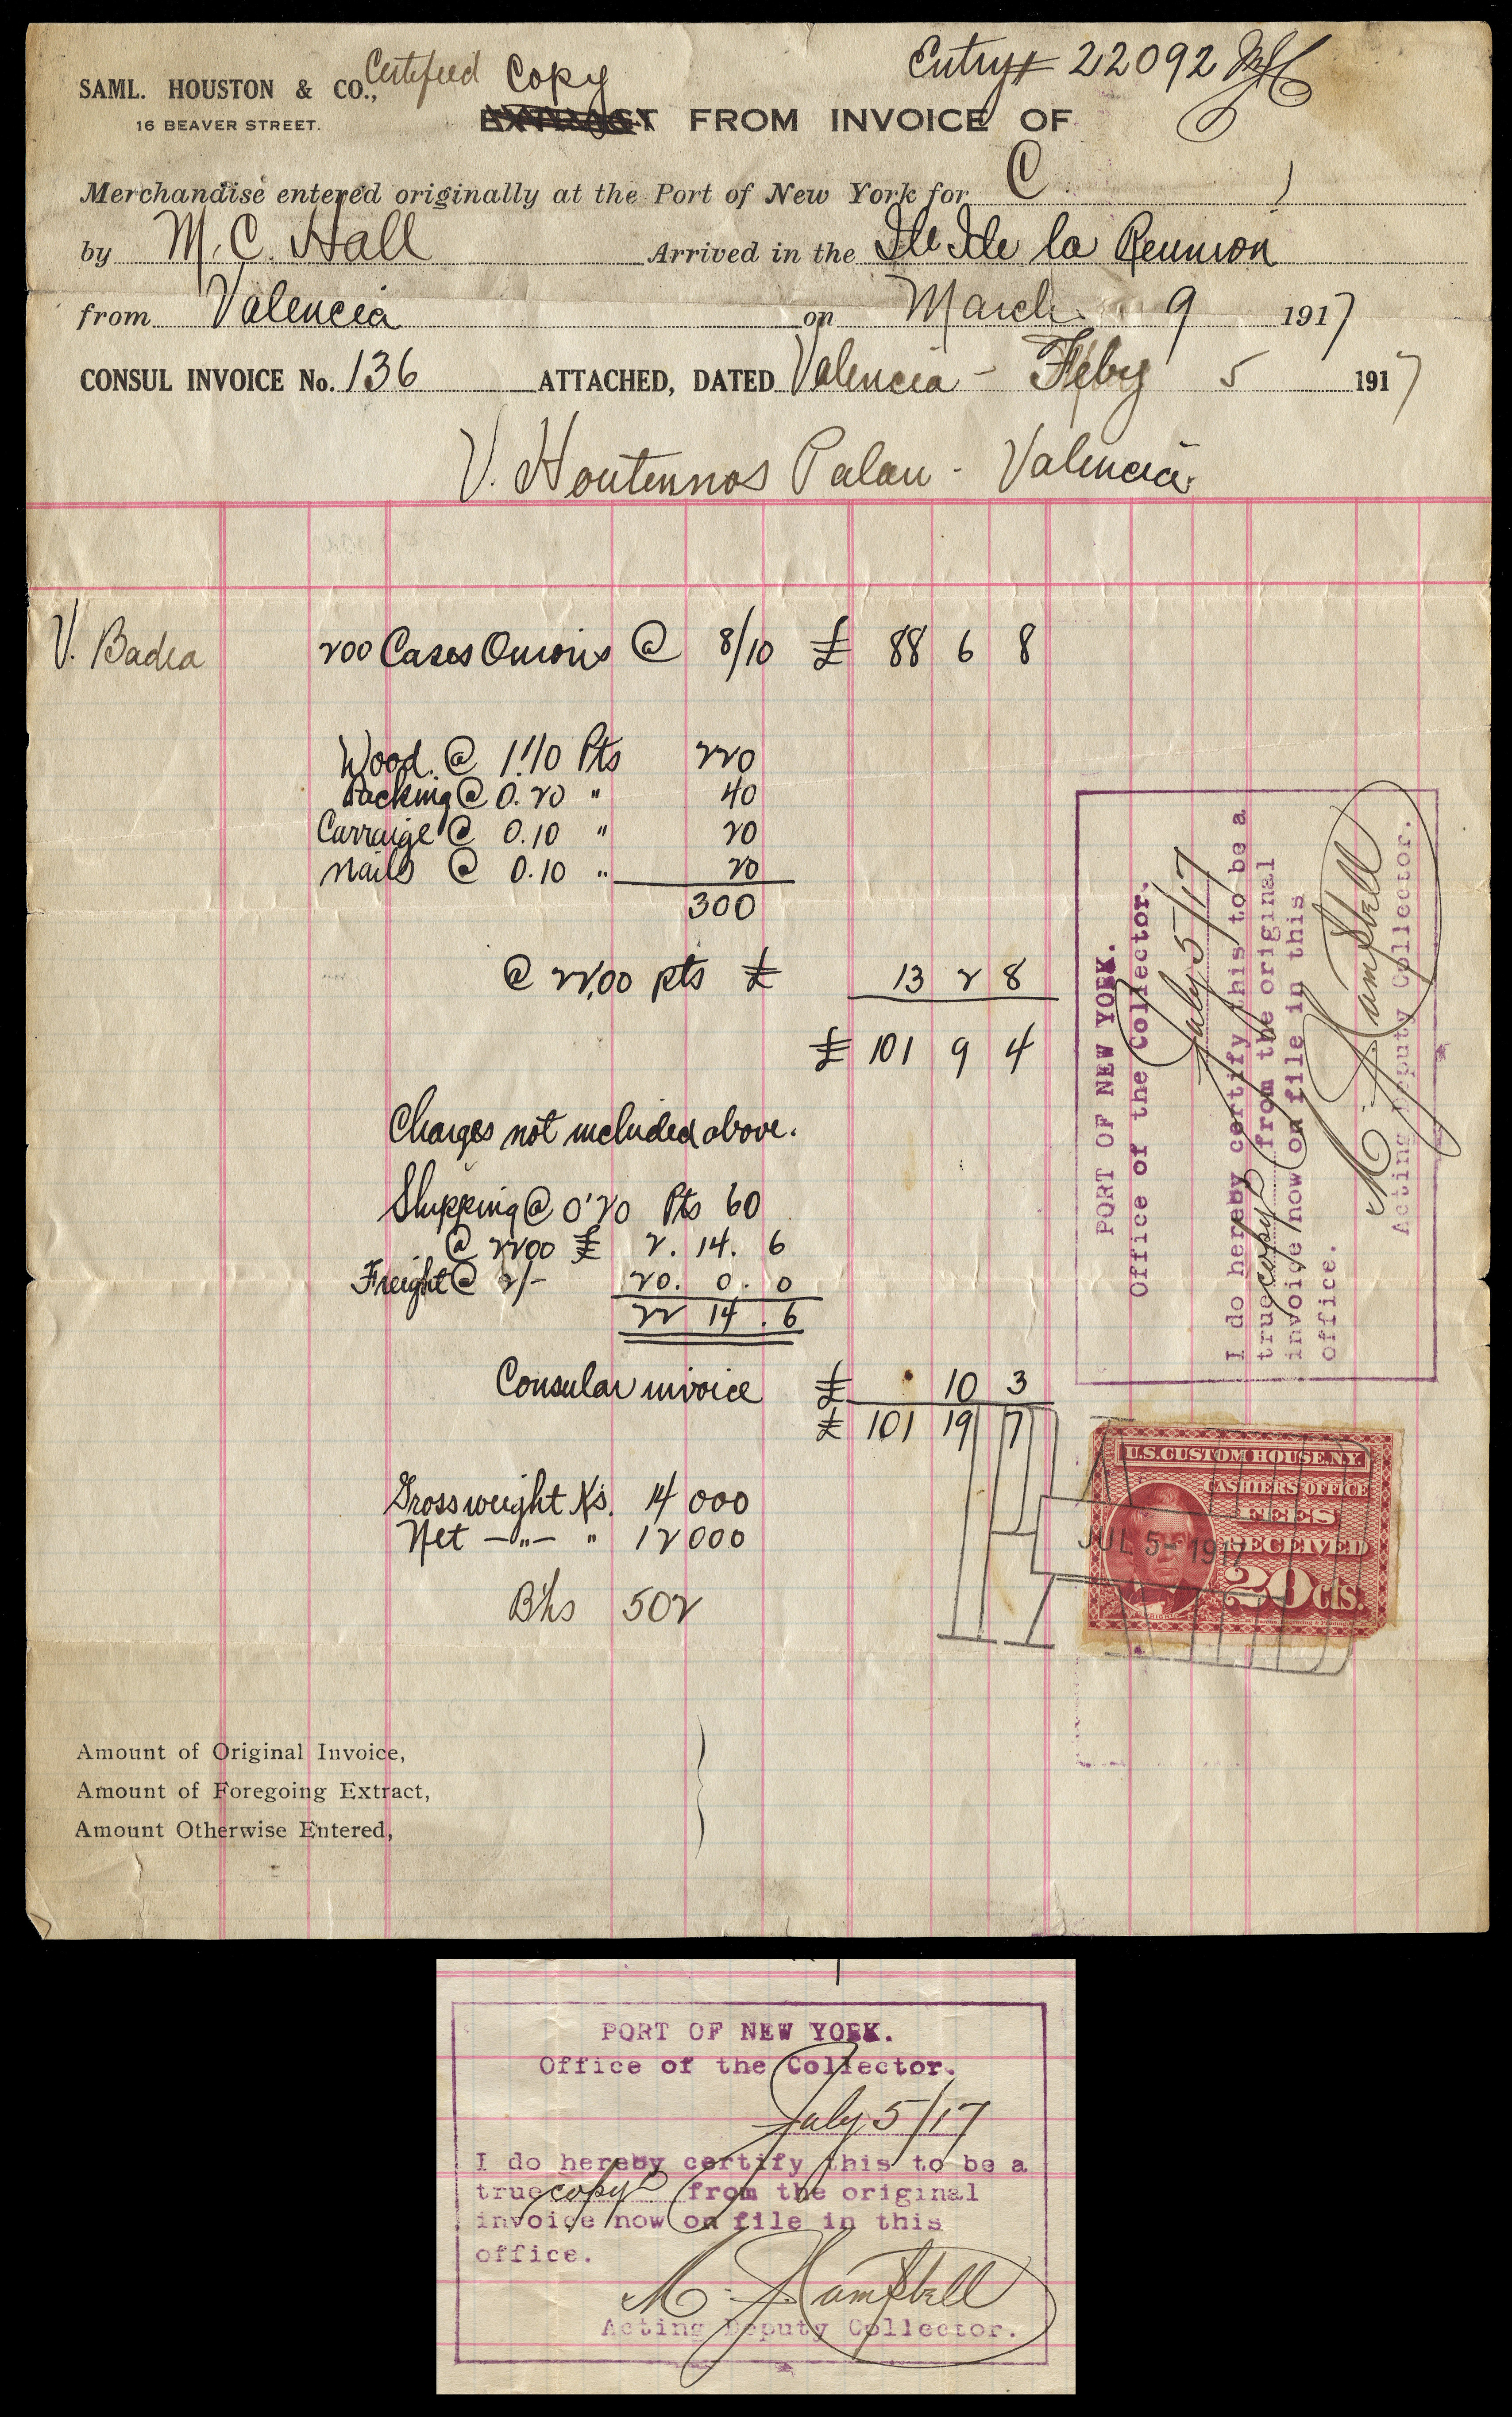 Entry# 22092
SAML. HOUSTON & CO., Certified Copy
16 BEAVER STREET.
EXTRACT FROM INVOICE OF
Merchandise entered originally at the Port of New York for C
by M. C. Hall Arrived in the Ile de la Reunion
from Valencia on March 9 1917
CONSUL INVOICE No. 136 ATTACHED, DATED Valencia - Feby 5 1917
V. Palau - Valencia
V. Badia 200 Cases Onions @ 8/10 £ 88 6 8
Wood @ 1.10 Pts 220
Packing @ 0.20 " 40
Carraige @ 0.10 " 20
Nails @ 0.10 " 20
300
@ 22,00 pts £ 13 2 8
£ 101 9 4
Charges not included above.
Shipping @ 0'20 Pts 60
@ 2200 £ 2. 14. 6
Freight @ 2/- 20. 0. 0
22 14. 6
Consular invoice £ 10 3
£ 101 19 7
Gross weight Ks. 14 000
Net -"- " 12 000
502
PORT OF NEW YORK.
Office of the Collector.
July 5/17
I do hereby certify this to be a
true copy from the original
invoice now on file in this
office.
Campbell
Acting Deputy Collector.
U.S. CUSTOM HOUSE, N.Y.
CASHIERS OFFICE
FEES
RECEIVED
20 cts.
JUL 5- 1917
Amount of Original Invoice,
Amount of Foregoing Extract,
Amount Otherwise Entered,
PORT OF NEW YORK.
Office of the Collector.
July 5/17
I do hereby certify this to be a
true copy from the original
invoice now on file in this
office.
Campbell
Acting Deputy Collector.